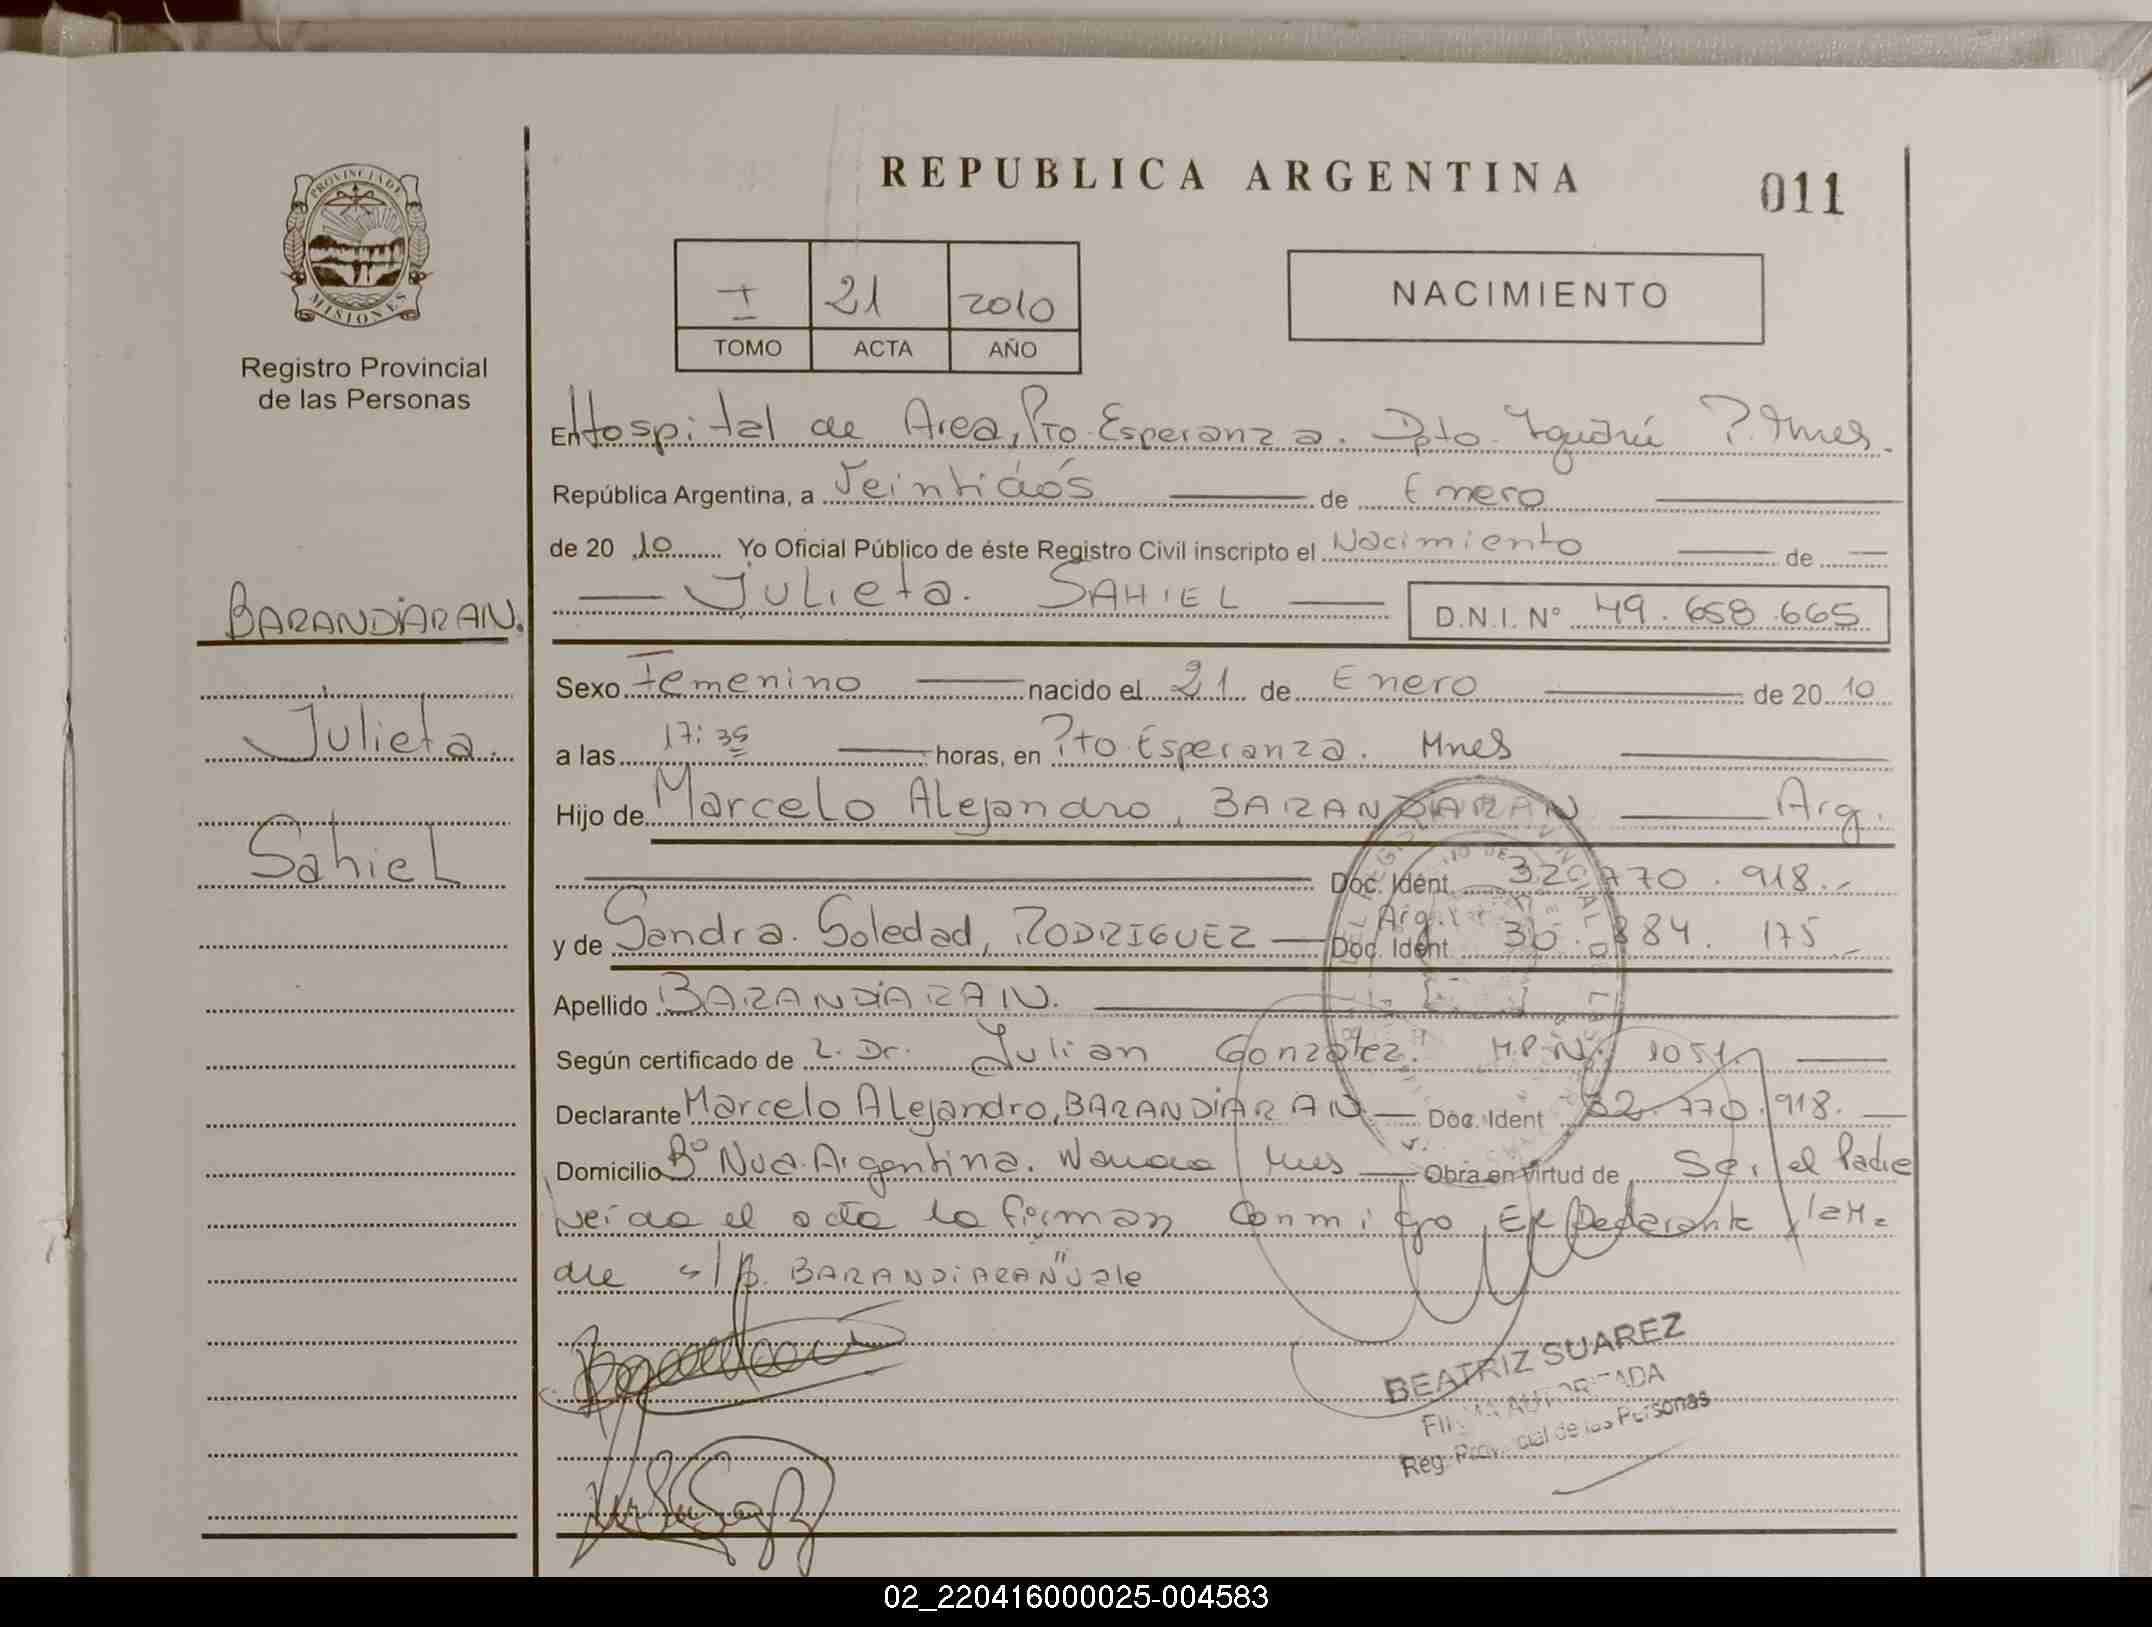 REPUBLICA ARGENTINA
011
PROVINCIA DE
MISIONES
Registro Provincial
de las Personas
I 21 2010
TOMO ACTA AÑO
NACIMIENTO
En Hospital de Area, Pto Esperanza. Dpto. Iguazú P. Mnes.
República Argentina, a Veintidós de Enero
de 20 10 Yo Oficial Público de éste Registro Civil inscripto el Nacimiento de
Julieta. SAHIEL
D.N.I. Nº 49.658.665
BARANDiARAN.
Julieta.
Sahiel
Sexo Femenino nacido el 21 de Enero de 20 10
a las 17:35 horas, en Pto. Esperanza. Mnes
Hijo de Marcelo Alejandro, BARANDiARAN Arg.
Doc. Ident. 32.770.918.-
Arg.
y de Sandra. Soledad, RODRIGUEZ Doc. Ident. 30.884.175
Apellido BARANDiARAN.
Según certificado de Dr. Julian Gonzalez. M.P.Nº 1051
Declarante Marcelo Alejandro, BARANDiARAN Doc. Ident 32.770.918.
Domicilio Bº Nva. Argentina. Wanda Mnes Obra en virtud de Ser el Padre
Leída el acta la firman Conmigo, El Declarante y la Ma
dre s/b. BARANDiARAN" Vale
BEATRIZ SUAREZ
FIRMA AUTORIZADA
Reg. Provincial de las Personas
02_220416000025-004583